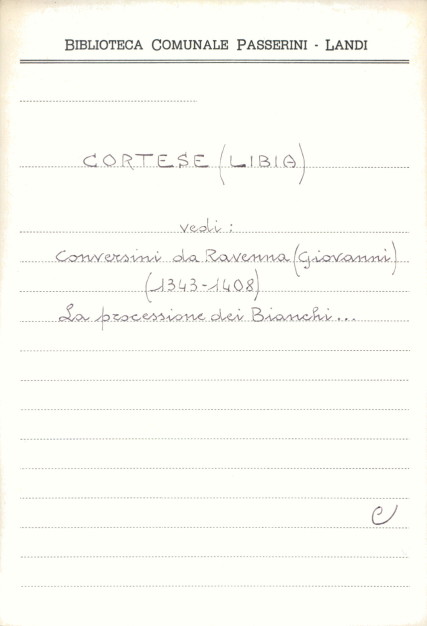 BIBLIOTECA COMUNALE PASSERINI - LANDI
CORTESE (LIBIA)
vedi:
Conversini da Ravenna (Giovanni)
(1343-1408)
La processione dei Bianchi...
C